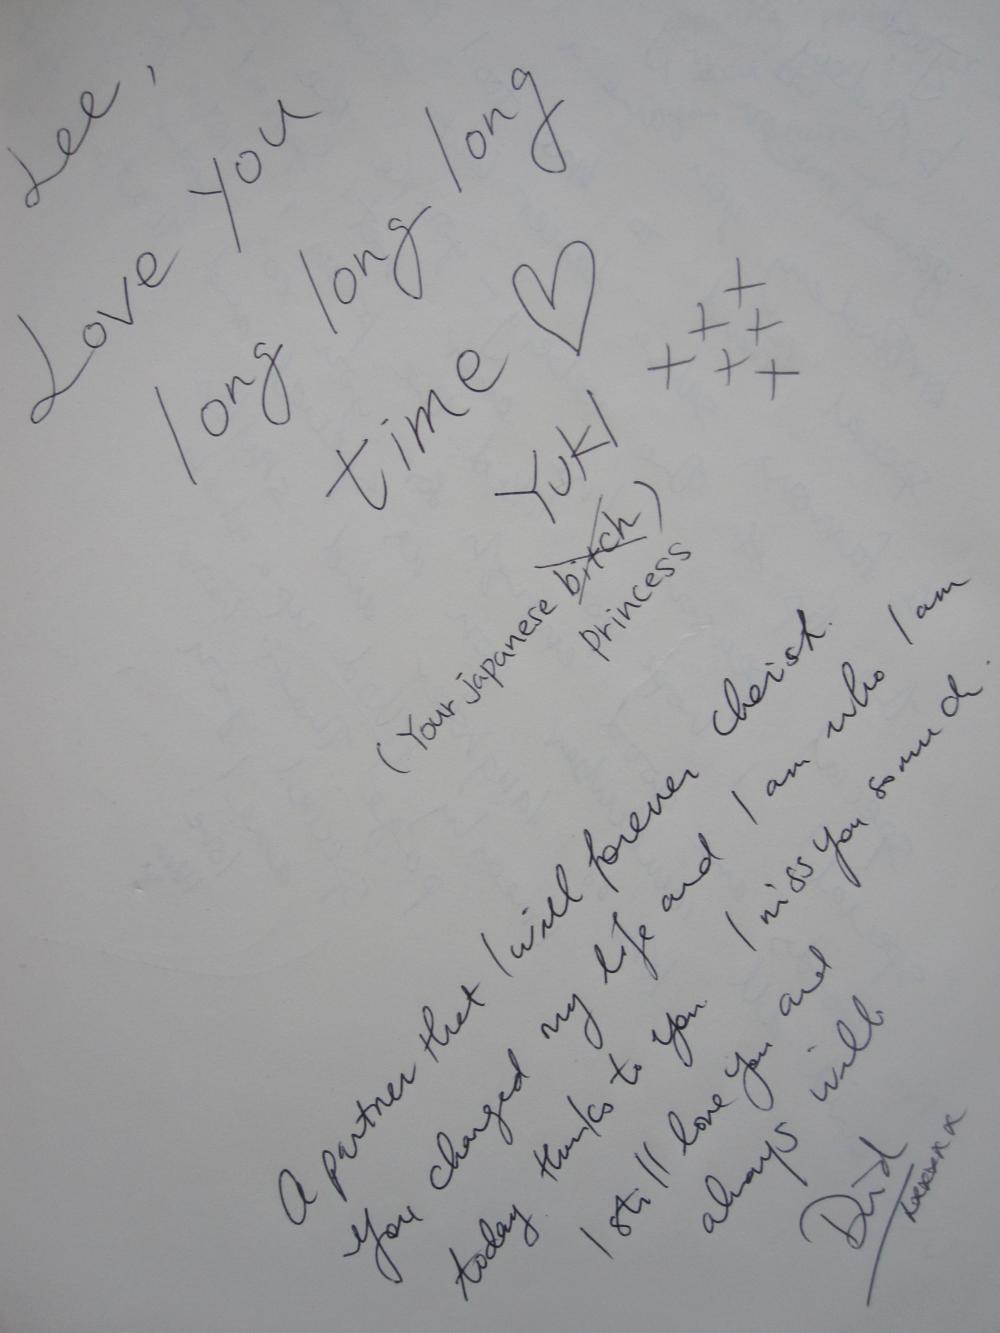 Lee,
Love you
long long long
time ♡
+
+ +
+ + +
YUKI
(Your japanese ~~bitch~~)
princess
A partner that I will forever cherish.
You changed my life and I am who I am
today thanks to you. I miss you so much.
I still love you and
always will